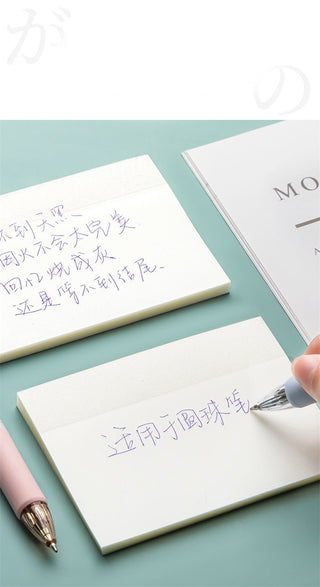 が
の
不到天黑、
烟火不会太完美
回忆烧成灰
还是等不到结尾.
MO
A
适用于圆珠笔